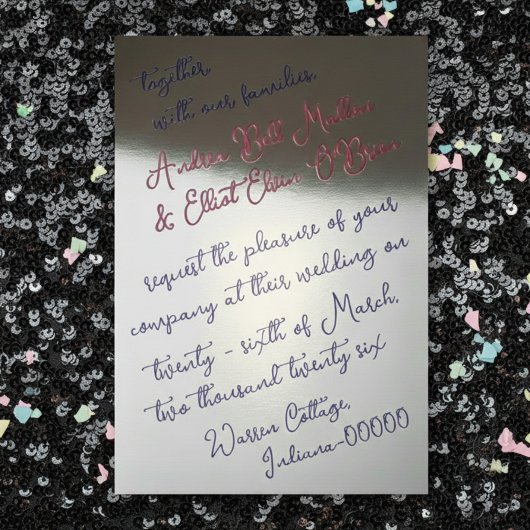 together,
with, our families,
Andrea Bell Mullins
& Elliot Elvin O'Brian
request the pleasure of your
company at their wedding on
twenty - sixth of March,
two thousand twenty six
Warren Cottage,
Indiana-00000